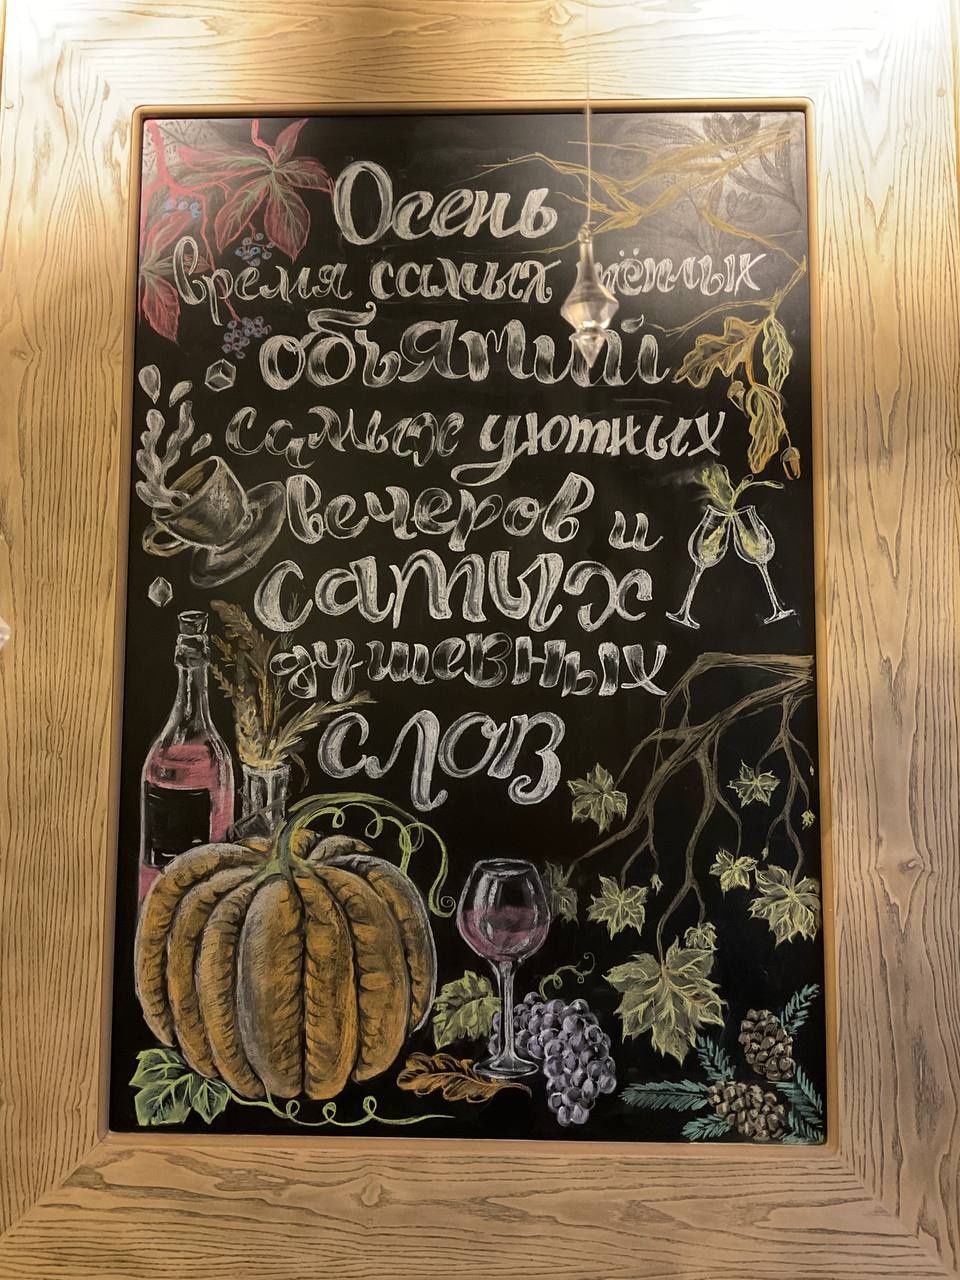 Осень
время самых тёплых
объятий
самых уютных
вечеров и
самых
душевных
слов